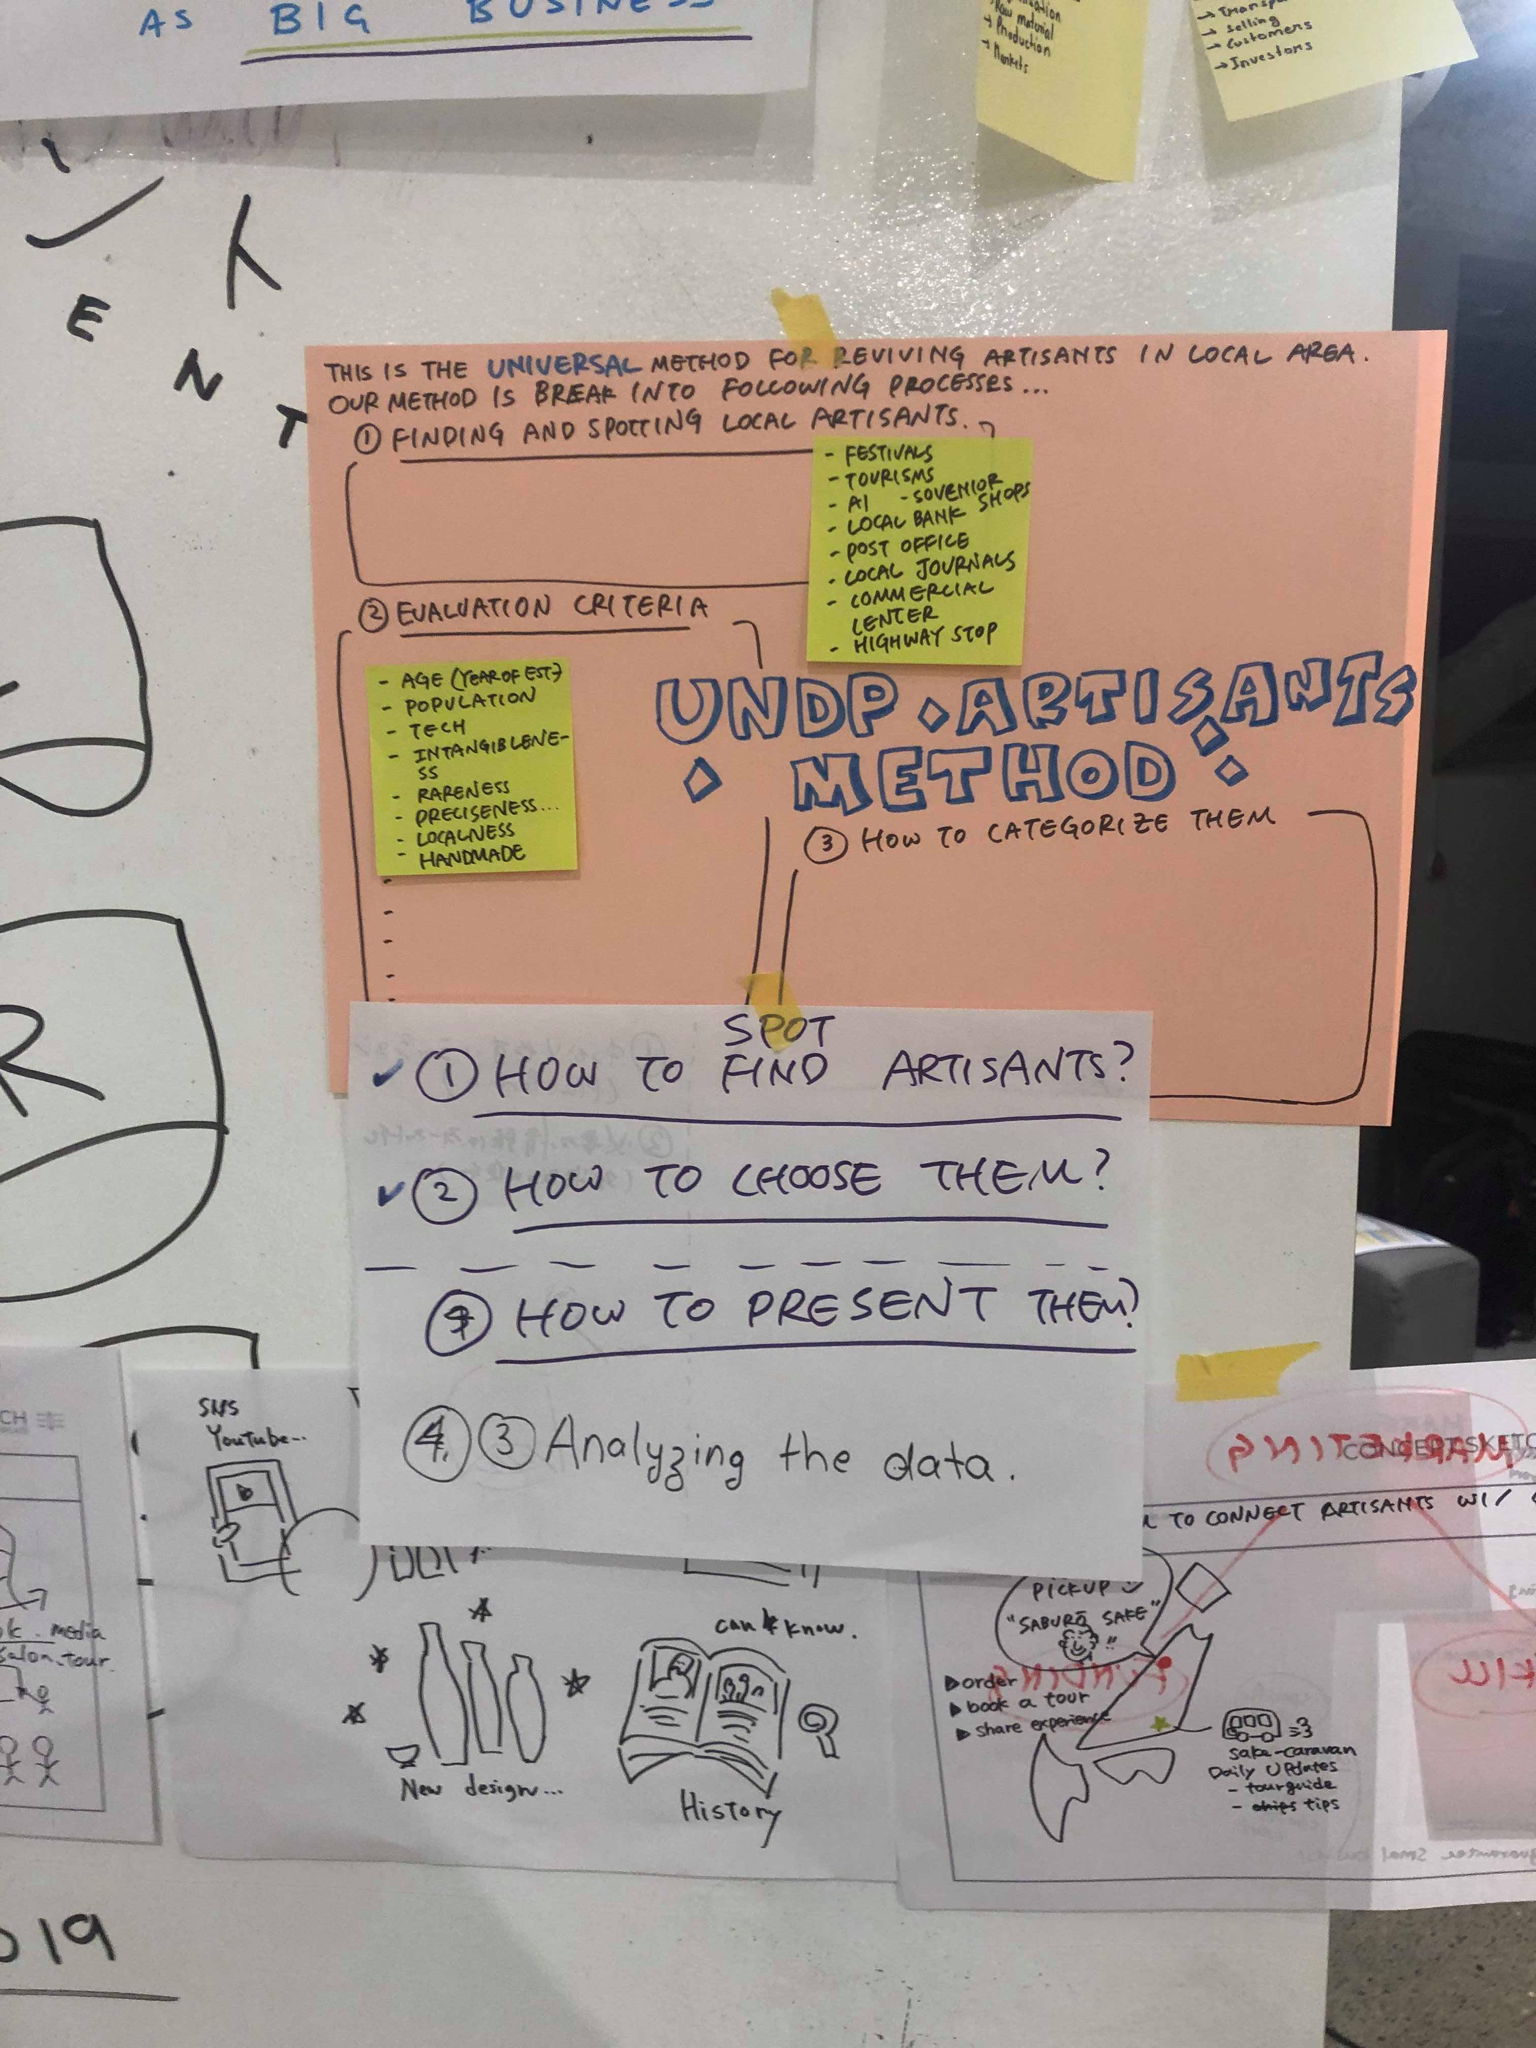 AS BIG BUSINESS
Raw material
→ Production
→ Markets
→ selling
→ Customers
→ Investors
E
N
T
THIS IS THE UNIVERSAL METHOD FOR REVIVING ARTISANTS IN LOCAL AREA.
OUR METHOD IS BREAK INTO FOLLOWING PROCESSES...
① FINDING AND SPOTTING LOCAL ARTISANTS.
- FESTIVALS
- TOURISMS
- AI - SOVENIOR SHOPS
- LOCAL BANK
- POST OFFICE
- LOCAL JOURNALS
- COMMERCIAL
CENTER
- HIGHWAY STOP
② EVALUATION CRITERIA
- AGE (YEAR OF EST)
- POPULATION
- TECH
- INTANGIBLENE-
SS
- RARENESS
- PRECISENESS...
- LOCALNESS
- HANDMADE
UNDP ARTISANTS
METHOD
③ HOW TO CATEGORIZE THEM
SPOT
✓ ① HOW TO FIND ARTISANTS?
✓ ② HOW TO CHOOSE THEM?
④ HOW TO PRESENT THEM?
4. ③ Analyzing the data.
R
SNS
YouTube...
media
salon.tour.
New design...
can know.
History
MARKETING
CONCEPT SKETC
TO CONNECT ARTISANTS W/
PICKUP
"SABURŌ SAKE"
!!
FUNDING
▶ order
▶ book a tour
▶ share experience
sake-caravan
Daily UPdates
- tourguide
- chips tips
019